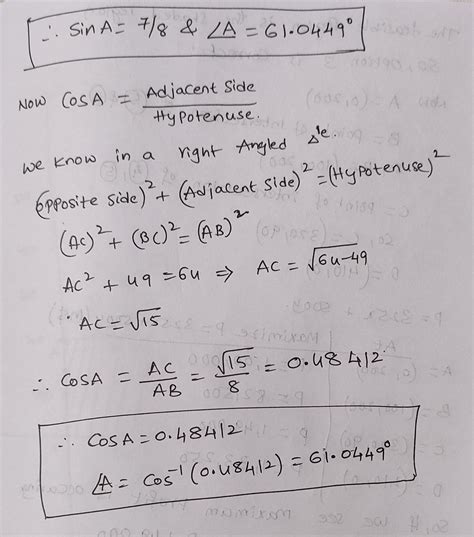 ∴ Sin A = 7/8 & ∠A = 61.0449°
Now Cos A = Adjacent Side / Hypotenuse.
We know in a right Angled Δle.
(Opposite side)² + (Adjacent side)² = (Hypotenuse)²
(AC)² + (BC)² = (AB)²
AC² + 49 = 64 ⇒ AC = √64-49
AC = √15
∴ Cos A = AC / AB = √15 / 8 = 0.48412
∴ Cos A = 0.48412
∠A = Cos⁻¹ (0.48412) = 61.0449°